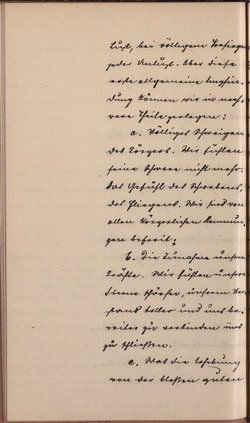 Lust, bei völligem Versiegen
jeder Unlust. Aber diese
erste allgemeine Empfin-
dung können wir in meh-
rere Theile zerlegen:
a. Völliges Schweigen
des Körpers. Wir fühlen
seine Schwere nicht mehr.
Das Gefühl des Schwebens,
des Fliegens. Wir sind von
allen körperlichen Hemmun-
gen befreit;
b. Die Zunahme unserer
Kräfte. Wir fühlen unsere
Sinne schärfer, unseren Ver-
stand heller und uns be-
reiter zu verbinden und
zu schließen.
c. Was die Erhebung
von der bloßen guten